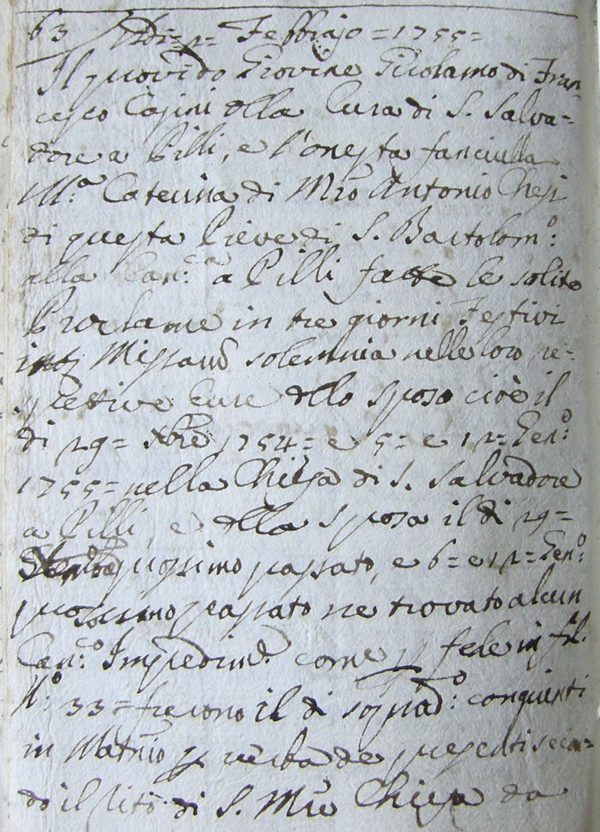 63 Adi = 2 = Febbrajo = 1755 =
Il provido Giovine Girolamo di Fran
cesco Casini della Cura di S. Salva=
dore a Pilli, e l'onesta fanciulla
M.ª Caterina di Mro Antonio Chesi
di questa Pieve di S. Bartolom.º:
alla Can.ca a Pilli fatte le solite
Proclame in tre giorni Festivi
inter Missarum solemnia nelle loro re=
spettive Cure dello sposo cioè il
dì 29 = Xbre 1754 = e 5 = e 12 = Gen.º:
1755 = nella Chiesa di S. Salvadore
a Pilli, e della sposa il dì 29 =
prossimo passato, e 6 = e 12 = Gen.º:
prossimo passato ne trovato alcun
Can.co Impedim.º come p fede in fil.
N.º: 33 = furono il dì soprad.º: conginti
in Matrio p verba de presenti secon=
do il Rito di S. Mre Chiesa da